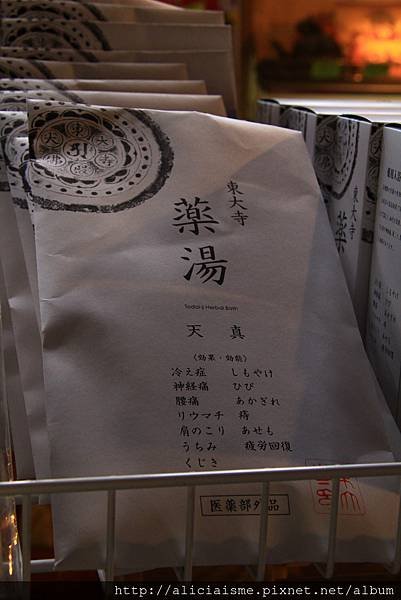 東大寺
薬湯
Todai-ji Herbal Bath
天真
《効果・効能》
冷え症 しもやけ
神経痛 ひび
腰痛 あかぎれ
リウマチ 痔
肩のこり あせも
うちみ 疲労回復
くじき
医薬部外品
東大寺
薬
http://aliciaisme.pixnet.net/album